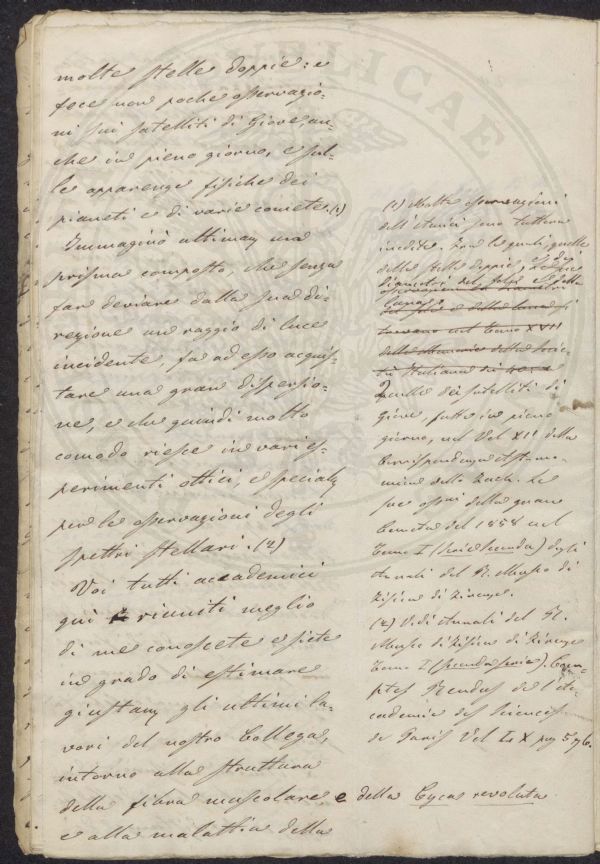 molte stelle doppie: e
fece non poche osservazio-
ni sui satelliti di Giove, an-
che in pieno giorno, e sul-
le apparenze fisiche dei
pianeti e di varie comete. (1)
Immaginò ultimam un
prisma composto, che senza
far deviare dalla sua di-
rezione un raggio di luce
incidente, fa ad esso acquis-
tare una gran dispersio-
ne, e che quindi molto
comodo riesce in vari es-
perimenti ottici, e specialm
per le osservazioni degli
spettri stellari. (2)
Voi tutti accademici
qui riuniti meglio
di me conoscete e siete
in grado di estimare
giustam gli ultimi la-
vori del nostro Collega,
intorno alla struttura
della fibra muscolare e della Cycas revoluta
e alla malattia della
(1) Molte osservazioni
dell'Amici sono tuttora
inedite. Tra le quali quelle
delle stelle doppie, e dei
diametri del sole
Quelle dei satelliti di
Giove, fatte in pieno
giorno, nel Vol XII della
Corrispondenza Astrono-
mica dello Zach. Le
sue osservi della gran
Cometa del 1858 nel
Tomo I (Serie Seconda) degli
Annali del R. Museo di
Fisica di Firenze.
(2) Vedi Annali del R.
Museo di Fisica di Firenze
Tomo I (seconda serie). Com-
ptes Rendus de l'A-
cademie des Sciences
de Paris Vol L X pag 596.